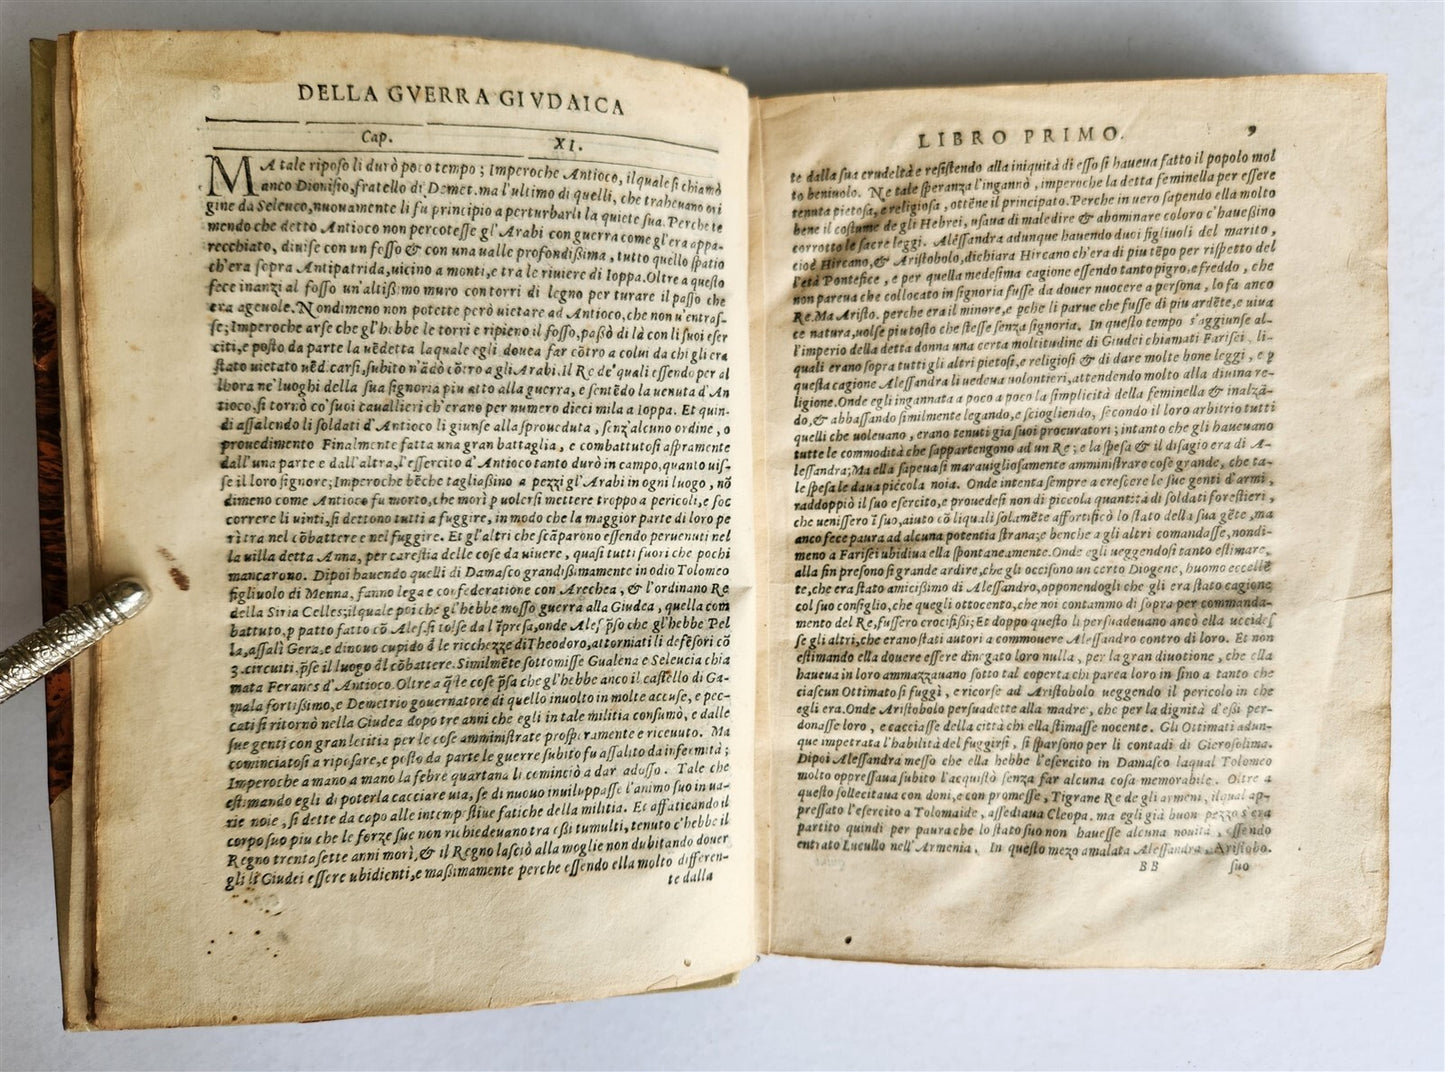 8
DELLA GVERRA GIVDAICA
Cap. XI.
MA tale riposo li durò poco tempo; Imperoche Antioco, il quale si chiamò
anco Dionisio, fratello di Demet. ma l'ultimo di quelli, che traheuano ori
gine da Seleuco, nuouamente li fu principio a perturbarli la quiete sua. Perche te
mendo che detto Antioco non percotesse gl'Arabi con guerra come gl'era appa-
recchiato, diuise con un fosso & con una ualle profondissima, tutto quello spatio
ch'era sopra Antipatrida, uicino a monti, e tra le riuiere di Ioppa. Oltre a questo
fece inanzi al fosso un'altißimo muro con torri di legno per turare il passo che
era ageuole. Nondimeno non potette però uietare ad Antioco, che non u'entras-
se; Imperoche arse che gl'hebbe le torri e ripieno il fosso, passò di là con li suoi eser
citi, e posto da parte la uẽdetta laquale egli douea far cõtro a colui da chi gli era
stato uietato uẽdicarsi, subito n'ãdò cõtro a gli Arabi. il Re de' quali essendo per al
lhora ne' luoghi della sua signoria piu atto alla guerra, e sentẽdo la uenuta d'An
tioco, si tornò co' suoi cauallieri ch'erano per numero dieci mila a Ioppa. Et quin-
di assalendo li soldati d'Antioco li giunse alla sproueduta, senz'alcuno ordine, o
prouedimento Finalmente fatta una gran battaglia, e combattutosi aspramente
dall'una parte e dall'altra, l'essercito d'Antioco tanto durò in campo, quanto uis-
se il loro signore; Imperoche bẽche tagliaßino a pezzi gl'Arabi in ogni luogo, nõ
dimeno come Antioco fu morto, che morì p uolersi mettere troppo a pericoli, e soc
correre li uinti, si dettono tutti a fuggire, in modo che la maggior parte di loro pe
rì tra nel cõbattere e nel fuggire. Et gl'altri che scãparono essendo peruenuti nel
la uilla detta Anna, per carestia delle cose da uiuere, quasi tutti fuori che pochi
mancarono. Dipoi hauendo quelli di Damasco grandißimamente in odio Tolomeo
figliuolo di Menna, fanno lega e confederatione con Arechea, & l'ordinano Re
della Siria Celles; il quale poi che gl'hebbe mosso guerra alla Giudea, quella com
battuto, p patto fatto cõ Ales. si tolse da l'ĩpresa, onde Ales. p̃so che gl'hebbe Pel
la, assalì Gera, e dinouo cupido d̃ le ricchezze di Theodoro, attorniati li defẽsori cõ
3. circuiti, p̃se il luogo d̃l cõbattere. Similmẽte sottomisse Gualena e Seleucia chia
mata Feranes d'Antioco. Oltre a q̃ste cose p̃sa che gl'hebbe anco il castello di Ga-
mala fortißimo, e Demetrio gouernatore di quello inuolto in molte accuse, e pec-
cati si ritornò nella Giudea dopo tre anni che egli in tale militia consumò, e dalle
sue genti con gran letitia per le cose amministrate prosperamente e riceuuto. Ma
cominciatosi a riposare, e posto da parte le guerre subito fu assalito da infermità;
Imperoche a mano a mano la febre quartana li cominciò a dar adosso. Tale che
estimando egli di poterla cacciare uia, se di nuouo inuiluppasse l'animo suo in ua-
rie noie, si dette da capo alle intempestiue fatiche della militia. Et affaticando il
corpo suo piu che le forze sue non richiedeuano tra eßi tumulti, tenuto c'hebbe il
Regno trentasette anni morì, & il Regno lasciò alla moglie non dubitando douer
gli li Giudei essere ubidienti, e maßimamente perche essendo ella molto differen-
te dalla
LIBRO PRIMO. 9
te dalla sua crudeltà e resistendo alla iniquità di esso si haueua fatto il popolo mol
to beniuolo. Ne tale speranza l'ingannò, imperoche la detta feminella per essere
tenuta pietosa, e religiosa, ottẽne il principato. Perche in uero sapendo ella molto
bene il costume de gli Hebrei, usaua di maledire & abominare coloro c'haueßino
corrotto le sacre leggi. Alessandra adunque hauendo duoi figliuoli del marito,
cioè Hircano, & Aristobolo, dichiara Hircano ch'era di piu tẽpo per rispetto del
l'età Pontefice, e per quella medesima cagione essendo tanto pigro, e freddo, che
non pareua che collocato in signoria fusse da douer nuocere a persona, lo fa anco
Re. Ma Aristo. perche era il minore, e pche li parue che fusse di piu ardẽte, e uiua
ce natura, uolse piu tosto che stesse senza signoria. In questo tempo s'aggiunse al-
l'imperio della detta donna una certa moltitudine di Giudei chiamati Farisei, li-
quali erano sopra tutti gli altri pietosi, e religiosi & di dare molte bone leggi, e p
questa cagione Alessandra li uedeua uolontieri, attendendo molto alla diuina re-
ligione. Onde egli ingannata a poco a poco la simplicità della feminella & inalzã-
do, & abbassando similmente legando, e sciogliendo, secondo il loro arbitrio tutti
quelli che uoleuano, erano tenuti gia suoi procuratori; intanto che gli haueuano
tutte le commodità che s'appartengono ad un Re; e la spesa & il disagio era di A-
lessandra; Ma ella sapeua si marauigliosamente amministrare cose grande, che ta-
le spesa le daua piccola noia. Onde intenta sempre a crescere le sue genti d'armi,
raddoppiò il suo esercito, e prouedesi non di piccola quantità di soldati forestieri,
che uenissero ĩ suo, aiuto cõ li quali solamẽte affortificò lo stato della sua gẽte, ma
anco fece paura ad alcuna potentia strana; e benche a gli altri comandasse, nondi-
meno a Farisei ubidiua ella spontaneamente. Onde egli ueggendosi tanto estimare,
alla fin presono si grande ardire, che gli occisono un certo Diogene, huomo eccellẽ
te, che era stato amicißimo di Alessandro, opponendogli che gli era stato cagione
col suo consiglio, che quegli ottocento, che noi contammo di sopra per commanda-
mento del Re, fussero crocifißi; Et doppo questo li persuadeuano ancò ella uccides
se gli altri, che erano stati autori a commouere Alessandro contro di loro. Et non
estimando ella douere essere dinegato loro nulla, per la gran diuotione, che ella
haueua in loro ammazzauano sotto tal coperta chi parea loro in sino a tanto che
ciascun Ottimato si fuggì, e ricorse ad Aristobolo ueggendo il pericolo in che
egli era. Onde Aristobolo persuadette alla madre, che per la dignità d'eßi per-
donasse loro, e cacciasse della città chi ella stimasse nocente. Gli Ottimati adun-
que impetrata l'habilità del fuggirsi, si sparsono per li contadi di Gierosolima.
Dipoi Alessandra messo che ella hebbe l'esercito in Damasco laqual Tolomeo
molto oppressaua subito l'acquistò senza far alcuna cosa memorabile. Oltre a
questo sollecitaua con doni, e con promesse, Tigrane Re de gli armeni, il qual ap-
pressato l'esercito a Tolomaide, assediaua Cleopa. ma egli già buon pezzo s'era
partito quindi per paura che lo stato suo non hauesse alcuna nouità, essendo
entrato Lucullo nell'Armenia. In questo mezo amalata Alessandra, Aristobo.
BB suo